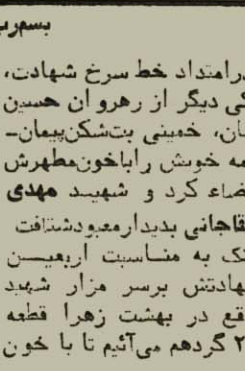 بسمرب
درامتداد خط سرخ شهادت،
کی دیگر از رهروان حسین
ان، خمینی بتشکن‌پیمان-
مه خویش راباخون‌مطهرش
ضاء کرد و شهید مهدی
قاجانی بدیدارمعبودشتافت
نک به مناسبت اربعین
هادتش برسر مزار شهید
قع در بهشت زهرا قطعه
۲ گردهم می‌آئیم تا با خون